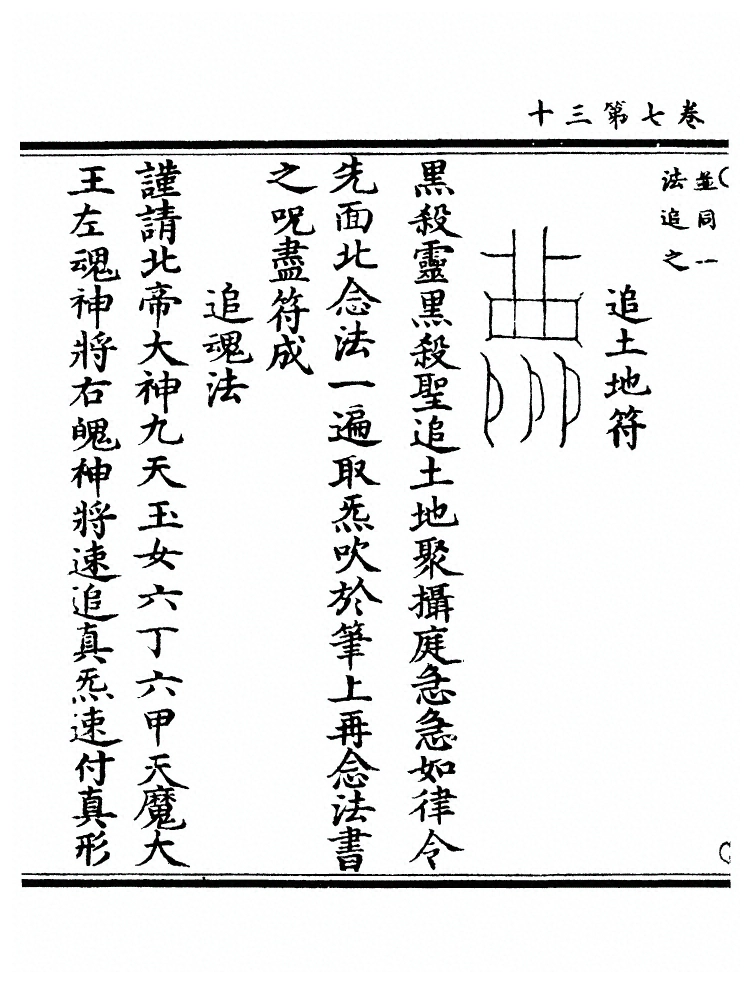 卷七第三十
並同一
法追之
追土地符
黑殺靈黑殺聖追土地聚攝庭急急如律令
先面北念法一遍取炁吹於筆上再念法書
之呪盡符成
追魂法
謹請北帝大神九天玉女六丁六甲天魔大
王左魂神將右魄神將速追真炁速付真形